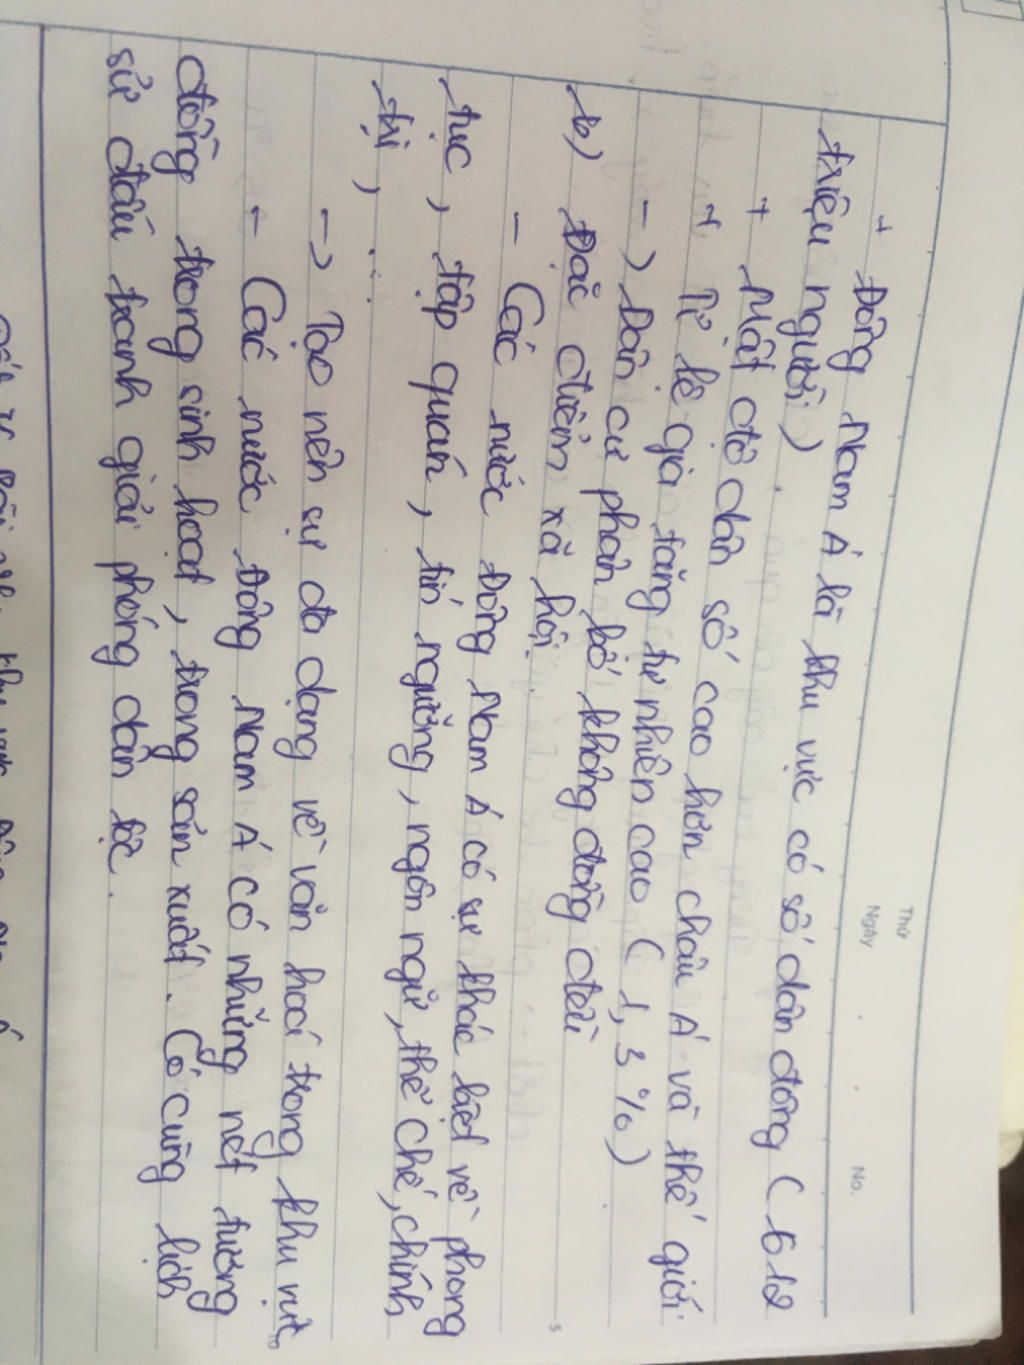 Thứ
Ngày
No.
+ Đông Nam Á là khu vực có số dân đông ( 612
triệu người )
+ Mật độ dân số cao hơn châu Á và thế giới
+ Tỉ lệ gia tăng tự nhiên cao ( 1,3 % )
-) Dân cư phân bố không đồng đều
b) Đặc điểm xã hội
- Các nước Đông Nam Á có sự khác biệt về phong
tục, tập quán, tín ngưỡng, ngôn ngữ, thể chế, chính
trị, ...
-) Tạo nên sự đa dạng về văn hoá trong khu vực
- Các nước Đông Nam Á có những nét tương
đồng trong sinh hoạt, trong sản xuất. Có cùng lịch
sử đấu tranh giải phóng dân tộc.
5
10